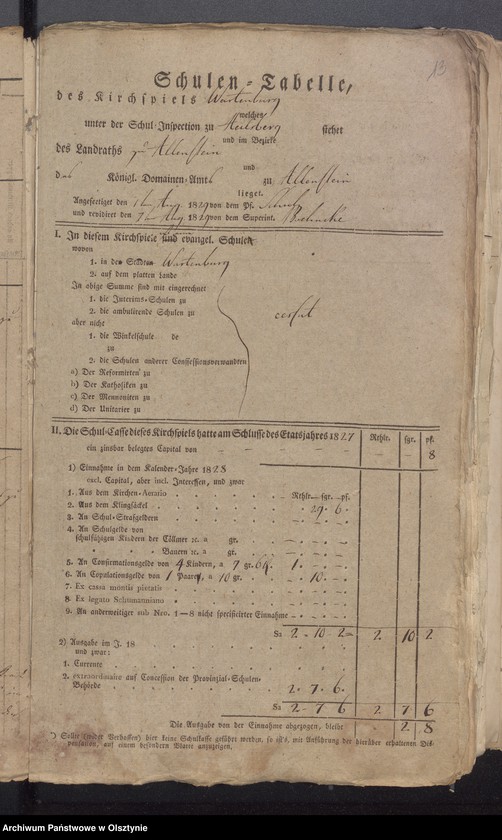 13
Schulen-Tabelle,
des Kirchspiels Wartenburg
welches
unter der Schul-Inspection zu Heilsberg stehet
und im Bezirke
des Landraths zu Allenstein
und
des Königl. Domainen-Amts zu Allenstein
lieget.
Angefertiget den 1ten Aug. 1829 von dem Pf.
und revidiret den 7ten Aug. 1829 von dem Superint.
I. In diesem Kirchspiele sind evangel. Schulen
wovon
1. in den Städten Wartenburg
2. auf dem platten Lande
In obige Summe sind mit eingerechnet
1. die Interims-Schulen zu
2. die ambulirende Schulen zu
aber nicht
cessat
1. die Winkelschule de
zu
2. die Schulen anderer Confessionsverwandten
a) Der Reformirten zu
b) Der Katholiken zu
c) Der Mennoniten zu
d) Der Unitarier zu
II. Die Schul-Casse dieses Kirchspiels hatte am Schlusse des Etatsjahres 1827 Rthlr. sgr. pf.
ein zinsbar belegtes Capital von — — — — — 8
1) Einnahme in dem Kalender-Jahre 1828
excl. Capital, aber incl. Interessen, und zwar
1. Aus dem Kirchen-Aerario Rthlr.—sgr.—pf.
2. Aus dem Klingsäckel 29. 6.
3. An Schul-Strafgeldern
4. An Schulgelde von
schulfähigen Kindern der Cöllmer ec. a gr.
" " Bauern ec. a gr.
5. An Confirmationsgelde von 4 Kindern, a 7 gr. 6 pf. 1. — —
6. An Copulationsgelde von 1 Paar, a 10 gr. — 10. —
7. Ex cassa montis pietatis
8. Ex legato Schumanniano
9. An anderweitiger sub Nro. 1—8 nicht specificirter Einnahme
Sa 2. 10 2 2. 10 2
2) Ausgabe im J. 18
und zwar:
1. Currente
2. extraordinaire auf Concession der Provinzial-Schulen-
Behörde 2. 7. 6.
Sa 2 — 7 6 2 7 6
Die Ausgabe von der Einnahme abgezogen, bleibt 2 8
*) Sollte (wider Verhoffen) hier keine Schulkasse geführt werden, so ist's, mit Anführung der hierüber erhaltenen Dis-
pensation, auf einem besondern Blatte anzuzeigen.
Archiwum Państwowe w Olsztynie
szukajwarchiwach.gov.pl